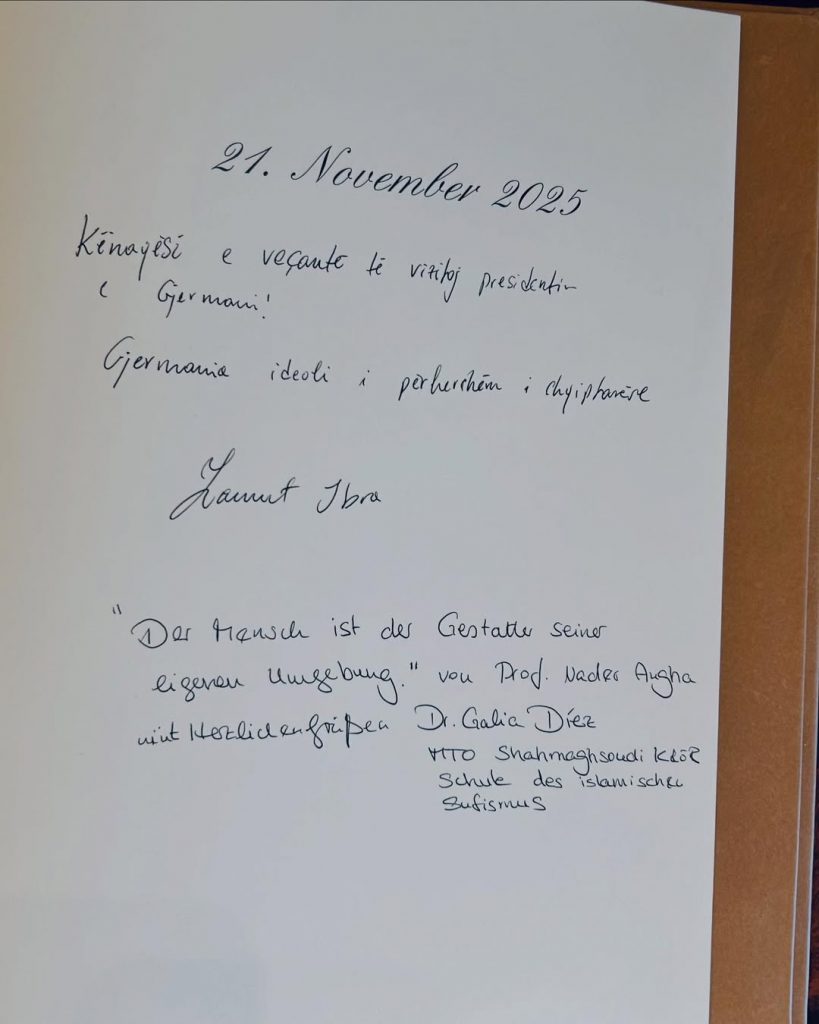 21. November 2025
Kënaqësi e veçantë të vizitoj presidentin
e Gjermani!
Gjermania ideoli i përhershëm i shqiptarëve
Ibra
"Der Mensch ist der Gestalter seiner
eigenen Umgebung." von Prof. Nader Angha
mit Herzlichen grüßen Dr. Galia Díez
MTO Shahmaghsoudi
Schule des islamischen
Sufismus